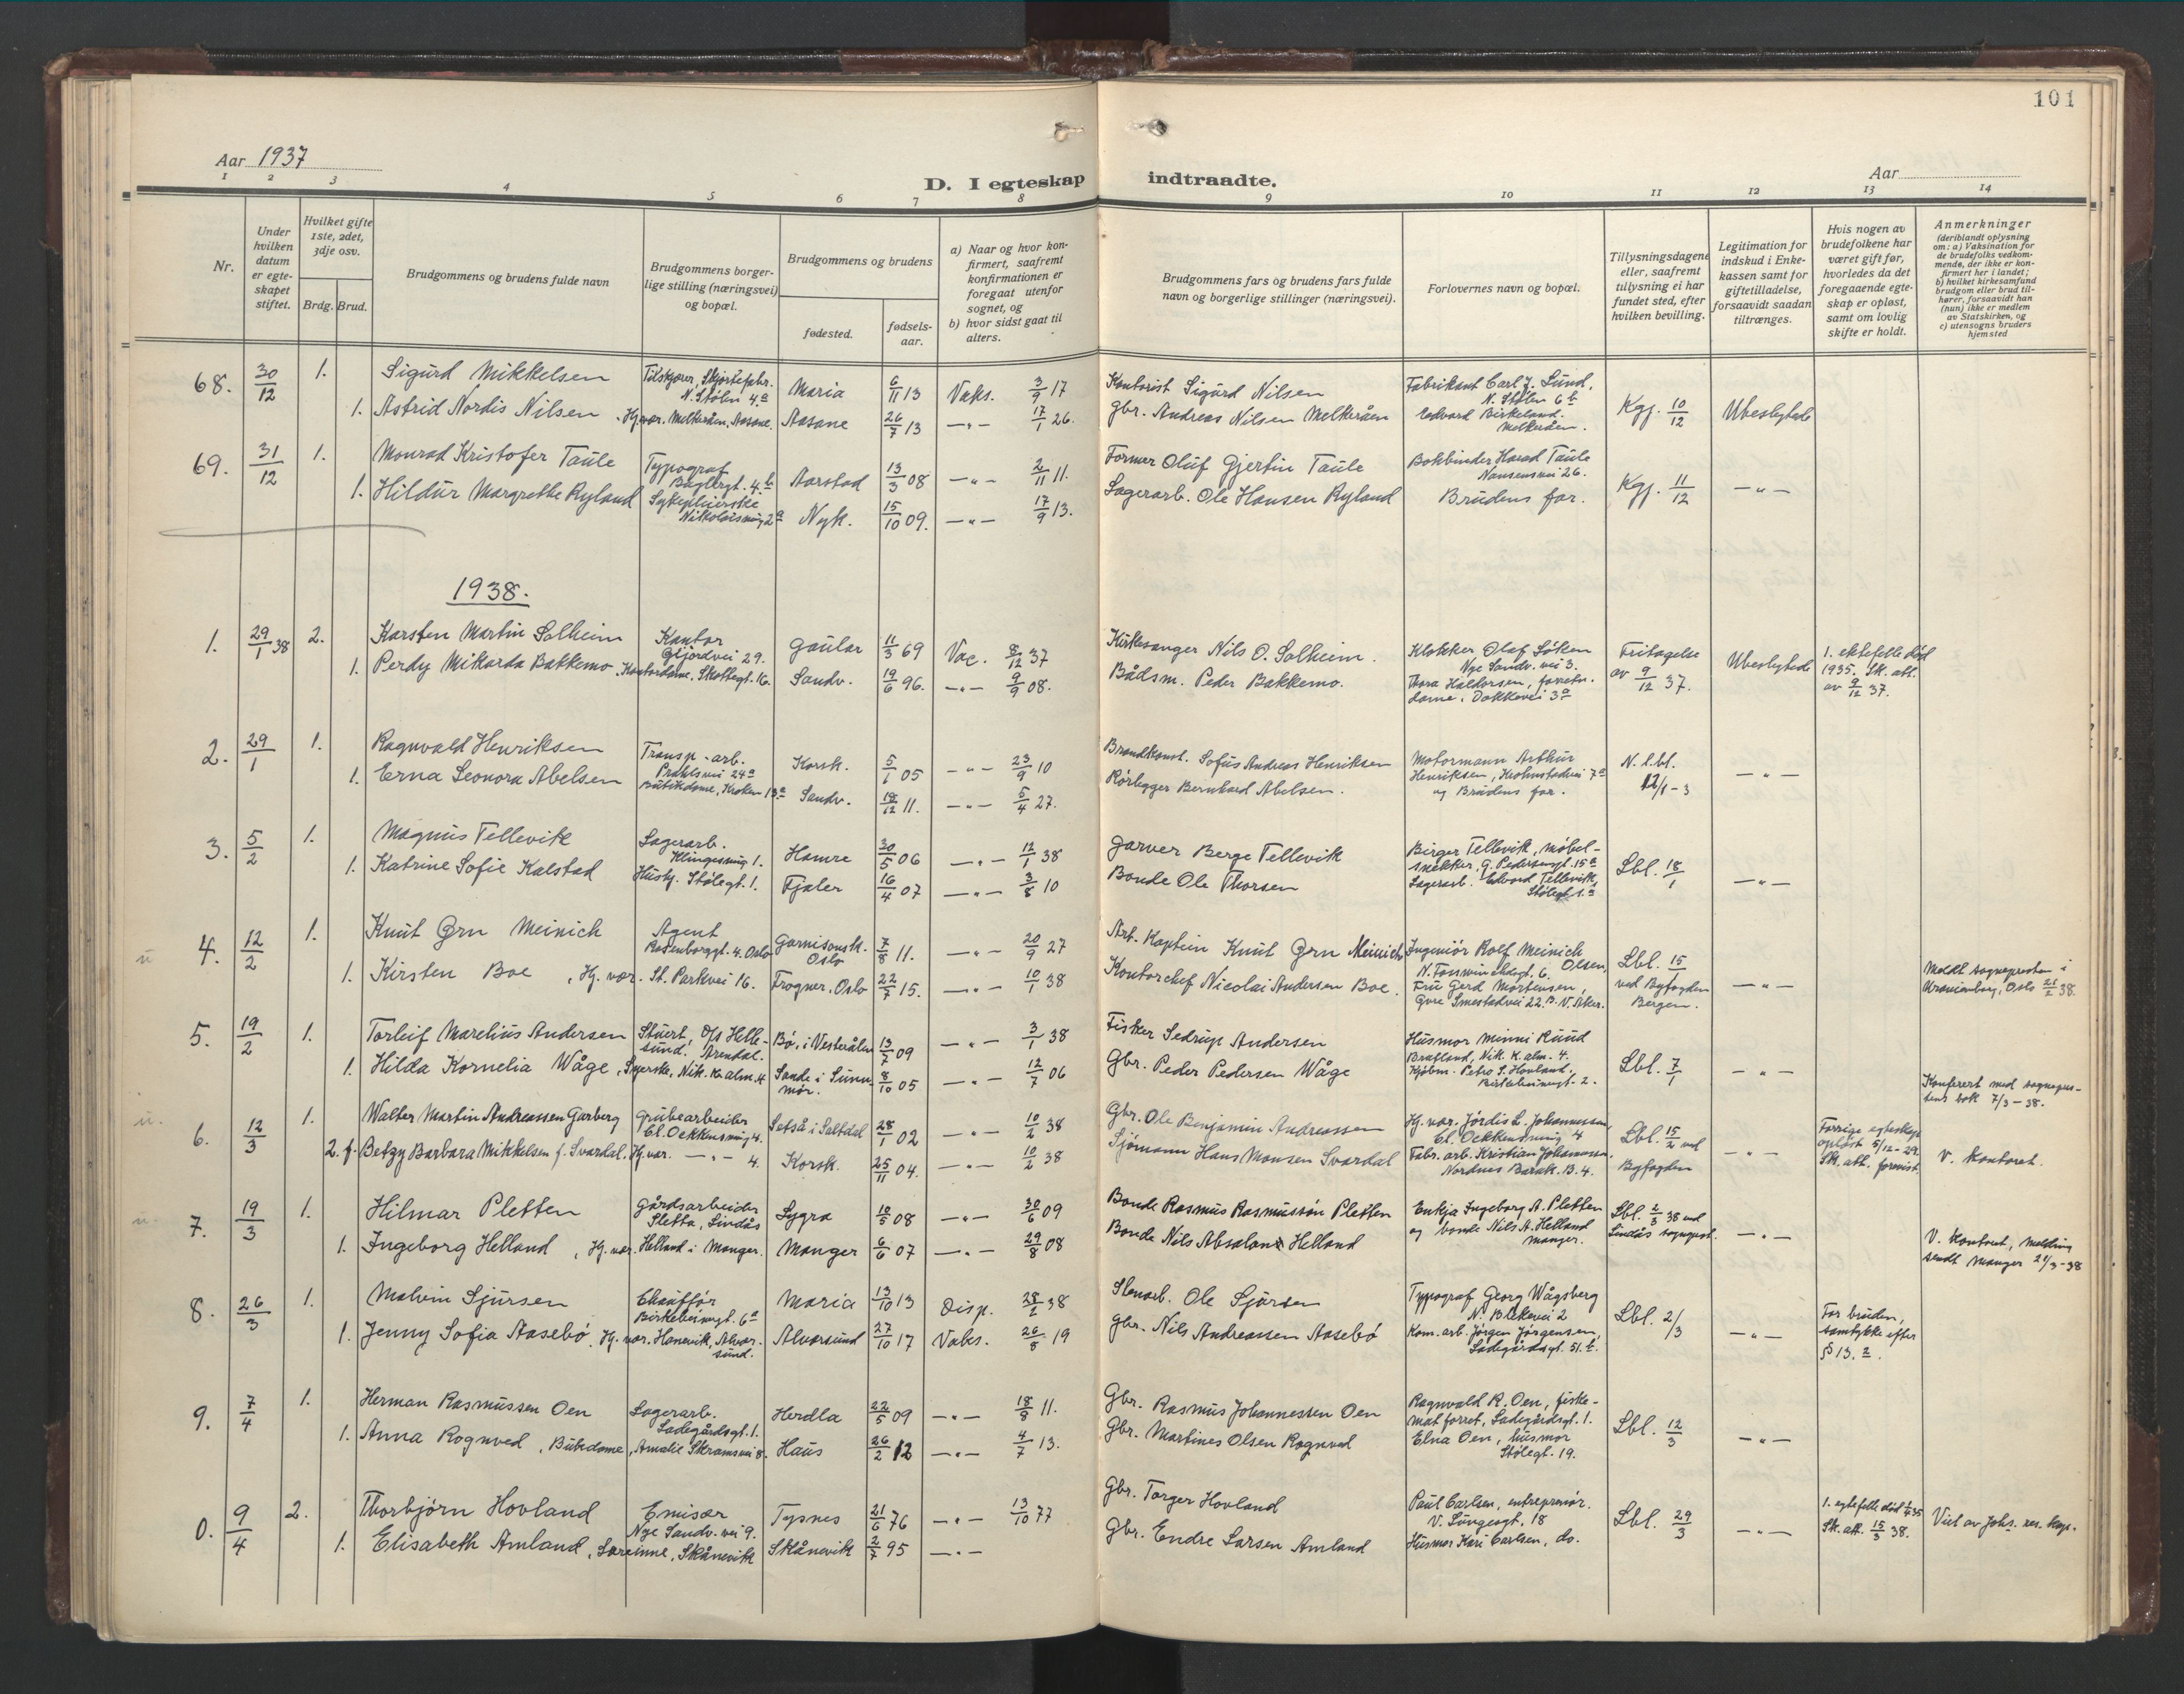 101
Aar 1937
Aar
D. I egteskap indtraadte.
1 2 3 4 5 6 7 8 9 10 11 12 13 14
Nr.
Under hvilken datum er egteskapet stiftet.
Hvilket gifte 1ste, 2det, 3dje osv.
Brdg. Brud.
Brudgommens og brudens fulde navn
Brudgommens borgerlige stilling (næringsvei) og bopæl.
Brudgommens og brudens
fødested.
fødselsaar.
a) Naar og hvor konfirmert, saafremt konfirmationen er foregaat utenfor sognet, og
b) hvor sidst gaat til alters.
Brudgommens fars og brudens fars fulde navn og borgerlige stillinger (næringsvei).
Forlovernes navn og bopæl.
Tillysningsdagene eller, saafremt tillysning ei har fundet sted, efter hvilken bevilling.
Legitimation for indskud i Enkekassen samt for giftetilladelse, forsaavidt saadan tiltrænges.
Hvis nogen av brudefolkene har været gift før, hvorledes da det foregaaende egteskap er opløst, samt om lovlig skifte er holdt.
Anmerkninger
(deriblandt oplysning om: a) Vaksination for de brudefolks vedkommende, der ikke er konfirmert her i landet; b) hvilket kirkesamfund brudgom eller brud tilhører, forsaavidt han (hun) ikke er medlem av Statskirken, og c) utensogns bruders hjemsted
68. 30/12 1. Sigurd Mikkelsen Tilskjærer, Skjortefabr. N. Stølen 4.a Maria 6/11 13 Vaks. 3/9 17 Kontorist Sigurd Nilsen Fabrikant Carl J. Lund, N. Stølen 6 b Kgj. 10/12 Ubeslegtede
1. Astrid Nordis Nilsen, Hj.vær. Melkeråen, Aasane. Aasane 26/7 13 —„— 17/1 26. Gbr. Andreas Nilsen Melkeråen Edvard Birkeland. Melkeråen.
69. 31/12 1. Monrad Kristofer Taule Typograf Baglergt. 4.b Aarstad 13/3 08 —„— 2/11 11. Former Oluf Gjertin Taule Bokbinder Harad Taule Nansensvei 26. Kgj. 11/12 —„—
1. Hildur Margrethe Ryland Sykepleierske Nikolaismug 2a Nyk. 15/10 09. —„— 17/9 13. Lagerarb. Ole Hansen Ryland Brudens far.
1938.
1. 29/1 38 2. Karsten Martin Solheim Kantor Gjøordvei 29. Gaular 11/3 69 Vac. 8/12 37 Kirkesanger Nils O. Solheim. Klokker Olaf Søken Nye Sandv. vei 3. Fritagelse av 9/12 37. Ubeslegtede 1. ektefelle død 1935. Sk. att. av 9/12 37.
1. Perdy Mikarda Bakkemo, Kontordame, Skottegt. 16. Sandv. 19/6 96. —„— 9/9 08. Bådsm. Peder Bakkemo. Thora Haldorsen, forretn. dame. Dokkevei 3a
2. 29/1 1. Ragnvald Henriksen Transp.-arb. Prahlsvei 24a Korsk. 5/1 05 —„— 23/9 10 Brandkonst. Sofus Andreas Henriksen Motormann Arthur Henriksen, Krohnstadvei 7a N. l.bl. 12/1-3 —„—
1. Erna Leonora Abelsen Butikdame, Kroken 13a Sandv. 18/12 11. —„— 5/4 27. Rørlegger Bernhard Abelsen. og Brudens far.
3. 5/2 1. Magnus Tellevik Lagerarb. Klingesmug 1. Hamre 30/5 06 —„— 12/1 38 Garver Berge Tellevik Birger Tellevik, møbelsnekker, G. Pedersensgt. 15a Lbl. 18/1 —„—
1. Katrine Sofie Kalstad Hushj. Stølegt. 1. Fjaler 16/4 07 —„— 3/8 10 Bonde Ole Thorsen Lagerarb. Edvard Tellevik, Stølegt. 1.a
u 4. 12/2 1. Knut Ørn Meinich Agent Rosenborggt. 4. Oslo Garnisonsk. Oslo 7/8 11. —„— 20/9 27 Art. Kaptein Knut Ørn Meinich Ingeniør Rolf Meinich Olsen, Lbl. 15/1 ved Byfogden Bergen. —„— Meldt sognepresten i Uranienborg, Oslo 21/2 38.
1. Kirsten Boe, Hj. vær. St. Parkvei 16. Frogner, Oslo 22/7 15. —„— 10/1 38 Kontorchef Nicolai Andersen Boe. Fru Gerd Mortensen, Øvre Smestadvei 22.B. V. Aker.
5. 19/2 1. Torleif Marelius Andersen Stuert, D/s Hellesund. Arendal. Bø, i Vesterålen 13/7 09 —„— 3/1 38 Fisker Sedrup Andersen Husmor Minni Ruud Bratland, Nik. K. alm. 4. Lbl. 7/1 —„—
1. Hilda Kornelia Wåge, Syerske, Nik. K. alm. 4 Sande i Sunnmør. 8/10 05 —„— 12/7 06 Gbr. Peder Pedersen Wåge Kjøbm. Petro S. Hovland, Konferert med sogneprestens bok 7/3-38.
u. 6. 12/3 1. Walter Martin Andreassen Garberg Grubearbeider Cl. Ockkensmug 4. Setså i Saltdal 28/1 02 —„— 10/2 38 Gbr. Ole Benjamin Andreassen Hj. vær. Jørdis L. Johannessen, Cl. Ockkensmug 4 Lbl. 15/2 ved Byfogden —„— Forrige egteskap opløst 5/12-29. Sk. att. forevist. V. Kontoret.
2. f. Betzy Barbara Mikkelsen f. Svardal. Hj.vær. —„— 4. Korsk. 25/11 04. —„— 10/2 38 Sjømann Hans Monsen Svardal Fabr. arb. Kristian Johannessen, Nordnes Barak. B. 4.
u. 7. 19/3 1. Hilmar Pletten Gårdsarbeider Sletta, Lindås Lygra 10/5 08 —„— 30/6 09 Bonde Rasmus Rasmusson Pletten Enkja Ingeborg A. Pletten Lbl. 2/3 38 ved Lindås sogneprest. —„—
1. Ingeborg Helland, Hj. vær. Helland i Manger. Manger 6/6 07 —„— 29/8 08 Bonde Nils Absalon Helland og bonde Nils A. Helland Manger. V. Kontoret, melding sendt Manger 21/3-38
8. 26/3 1. Malvin Sjursen Chauffør Birkebeinergt. 6a Maria 13/10 13 Disp. 28/2 38 Stenarb. Ole Sjursen Typograf Georg Wågsberg N. Blekevei 2 Lbl. 2/3 —„— For bruden, samtykke efter § 13.2.
1. Jenny Sofia Aasebø, Hj. vær. Hanevik, Alversund. Alversund 27/10 17 Vaks. 26/8 19 Gbr. Nils Andreassen Aasebø Kom. arb. Jørgen Jørgensen, Ladegårdsgt. 51.b.
9. 7/4 1. Herman Rasmussen Oen Lagerarb. Ladegårdsgt. 1. Herdla 22/5 09 —„— 18/8 11. Gbr. Rasmus Johannessen Oen Ragnvald R. Oen, fiskematforret, Ladegårdsgt. 1. Lbl. 12/3 —„—
1. Anna Rognved, Butdame, Amalie Skramsvei 8. Haus 26/2 12 —„— 4/7 13. Gbr. Martines Olsen Rognved Elna Oen, husmor Stølegt. 19.
0. 9/4 2. Thorbjørn Hovland Emisær Nye Sandv. vei 9. Tysnes 21/6 76 —„— 13/10 77 Gbr. Torger Hovland Paul Carlsen, entreprenør. V. Lungegt. 18 Lbl. 29/3 —„— 1. egtefelle død Sk. att. 15/3 38. Viet av Johs. res. kap.
1. Elisabeth Amland, Lærerinne, Skånevik Skånevik 2/7 95 —„— Gbr. Endre Larsen Amland Husmor Kari Carlsen, do.